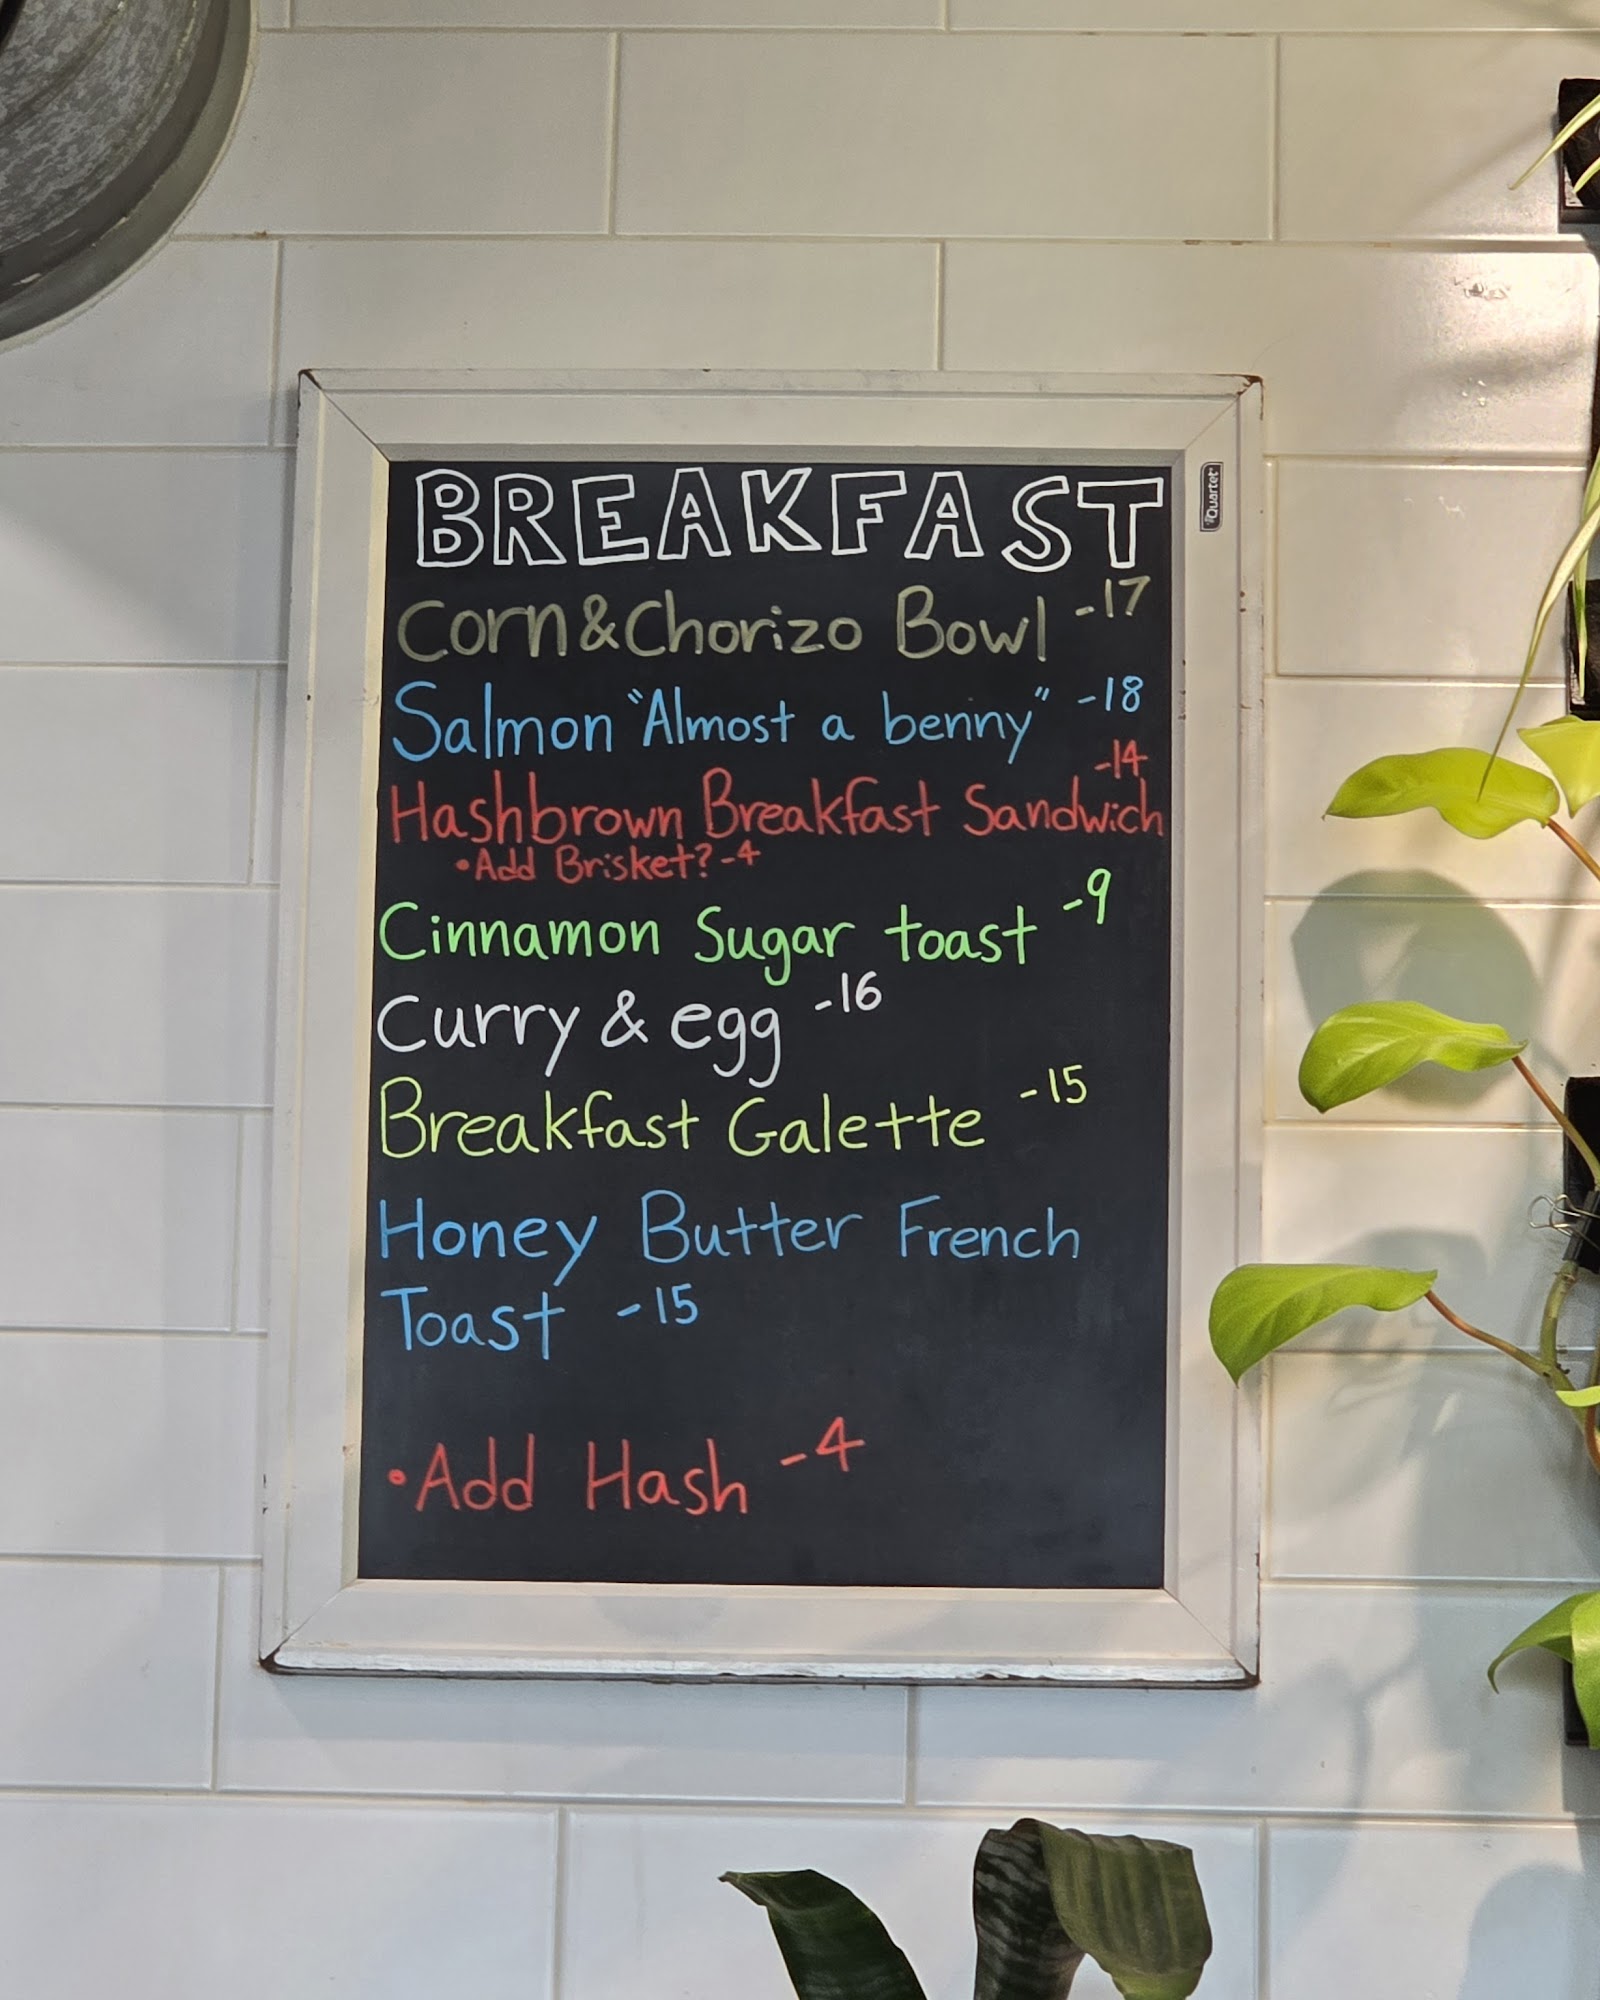 BREAKFAST
Quartet
Corn & Chorizo Bowl -17
Salmon "Almost a benny" -18
Hashbrown Breakfast Sandwich -14
•Add Brisket? -4
Cinnamon Sugar toast -9
Curry & egg -16
Breakfast Galette -15
Honey Butter French
Toast -15
•Add Hash -4